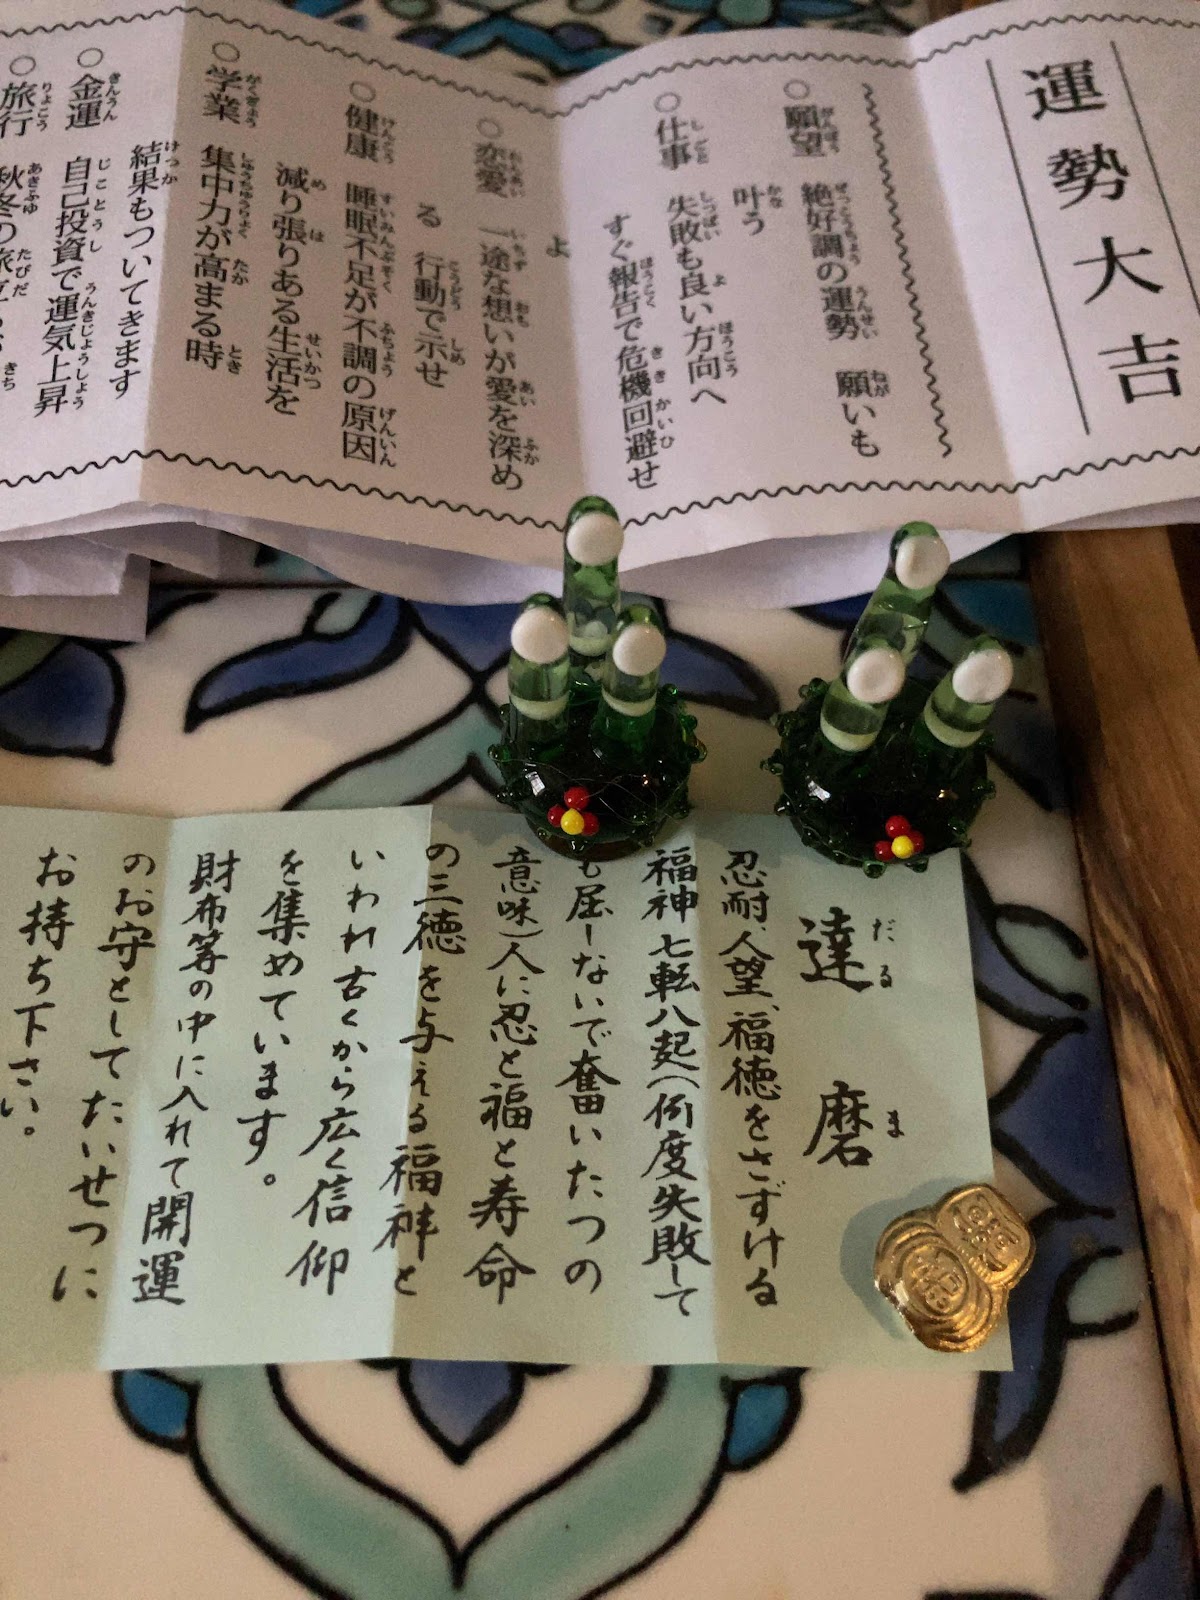 運勢大吉
○願望 絶好調の運勢 願いも
叶う
○仕事 失敗も良い方向へ
すぐ報告で危機回避せ
よ
○恋愛 一途な想いが愛を深め
る 行動で示せ
○健康 睡眠不足が不調の原因
減り張りある生活を
○学業 集中力が高まる時
結果もついてきます
○金運 自己投資で運気上昇
○旅行 秋冬の旅
達磨
忍耐、人望、福徳をさずける
福神 七転八起(何度失敗して
も屈しないで奮いたつの
意味)人に忍と福と寿命
の三徳を与える福神と
いわれ古くから広く信仰
を集めています。
財布等の中に入れて開運
のお守としてたいせつに
お持ち下さい。